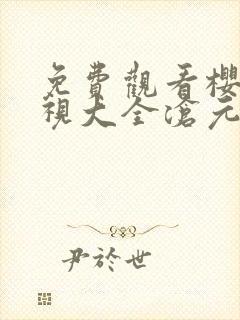 免費觀看櫻
視大全滄元
尹於世